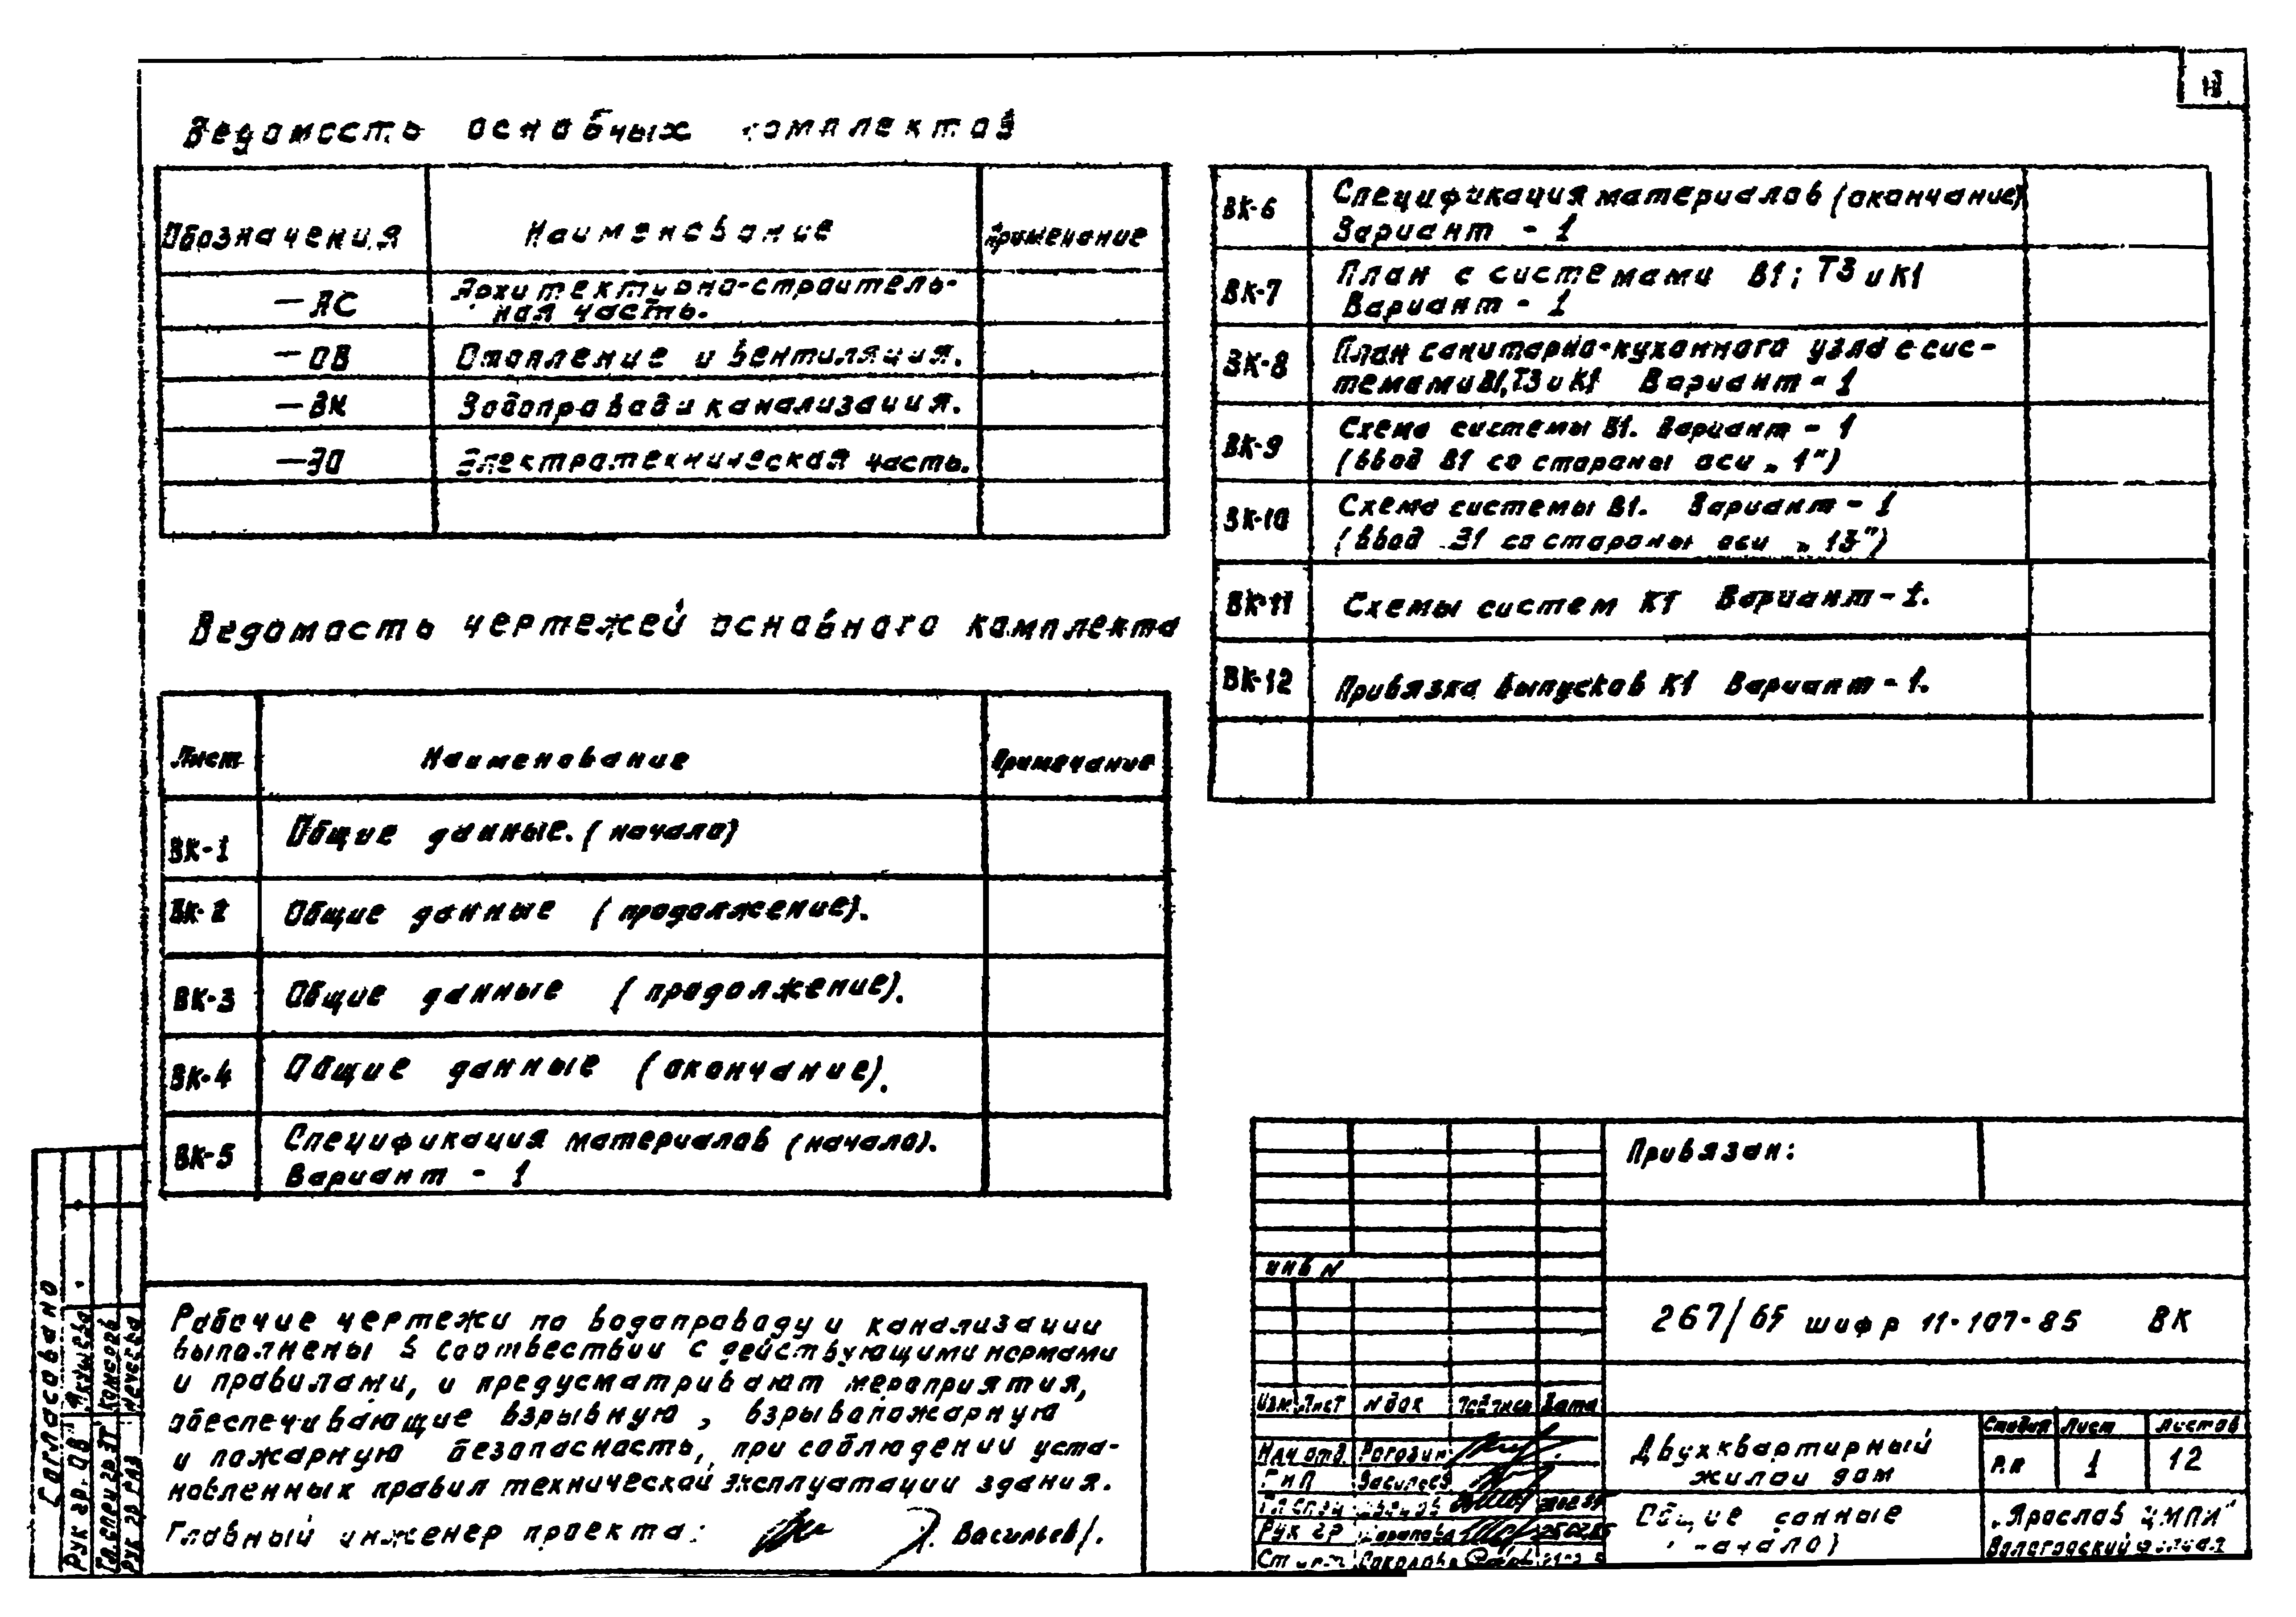 Ведомость основных комплектов
Обозначения Наименование Примечание
—АС Архитектурно-строитель-
ная часть.
—ОВ Отопление и вентиляция.
—ВК Водопровод и канализация.
—ЭО Электротехническая часть.
Ведомость чертежей основного комплекта
Лист Наименование Примечание
ВК-1 Общие данные. (начало)
ВК-2 Общие данные (продолжение).
ВК-3 Общие данные (продолжение).
ВК-4 Общие данные (окончание).
ВК-5 Спецификация материалов (начало).
Вариант - 1
ВК-6 Спецификация материалов (окончание)
Вариант - 1
ВК-7 План с системами В1; Т3 и К1
Вариант - 1
ВК-8 План санитарно-кухонного узла с сис-
темами В1, Т3 и К1 Вариант - 1
ВК-9 Схема системы В1. Вариант - 1
(ввод В1 со стороны оси „1")
ВК-10 Схема системы В1. Вариант - 1
(ввод В1 со стороны оси „13")
ВК-11 Схемы систем К1 Вариант - 1.
ВК-12 Привязка выпусков К1 Вариант - 1.
Рабочие чертежи по водопроводу и канализации
выполнены в соотвествии с действующими нормами
и правилами, и предусматривают мероприятия,
обеспечивающие взрывную, взрывопожарную
и пожарную безопасность, при соблюдении уста-
новленных правил технической эксплуатации здания.
Главный инженер проекта: Васильев/.
Согласовано
Рук гр. ОВ
Гл. спец гр ЭТ
Рук гр
Привязан:
инв N
267/65 шифр 11-107-85 ВК
Изм Лист N док Подпись Дата
Нач отд. Рогозин
ГИП Васильев
Гл спец
Рук гр
Соколова
Двухквартирный
жилой дом
Стадия Лист Листов
Р.П 1 12
Общие данные
(начало)
„Ярослав ЦМПИ"
Вологодский филиал